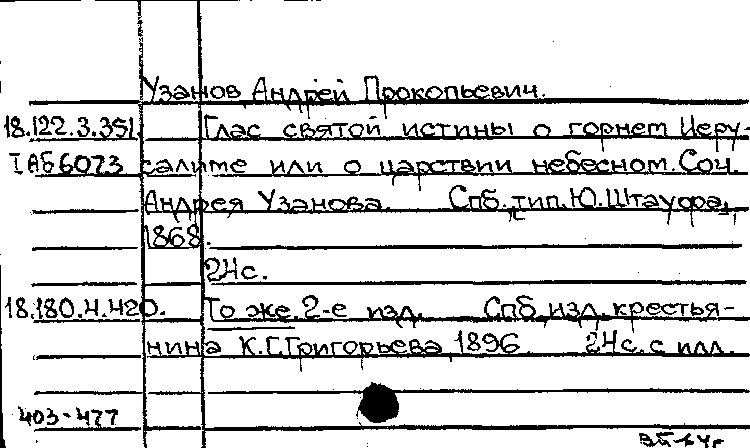 Узанов, Андрей Прокопьевич.
18.122.3.351. Глас святой истины о горнем Иеру-
IАБ6073 салиме или о царствии небесном. Соч.
Андрея Узанова. Спб. тип. Ю. Штауфа,
1868.
24с.
18.180.4.420. То же. 2-е изд. Спб. изд. крестья-
нина К.Г.Григорьева, 1896. 24с. с илл.
403-477